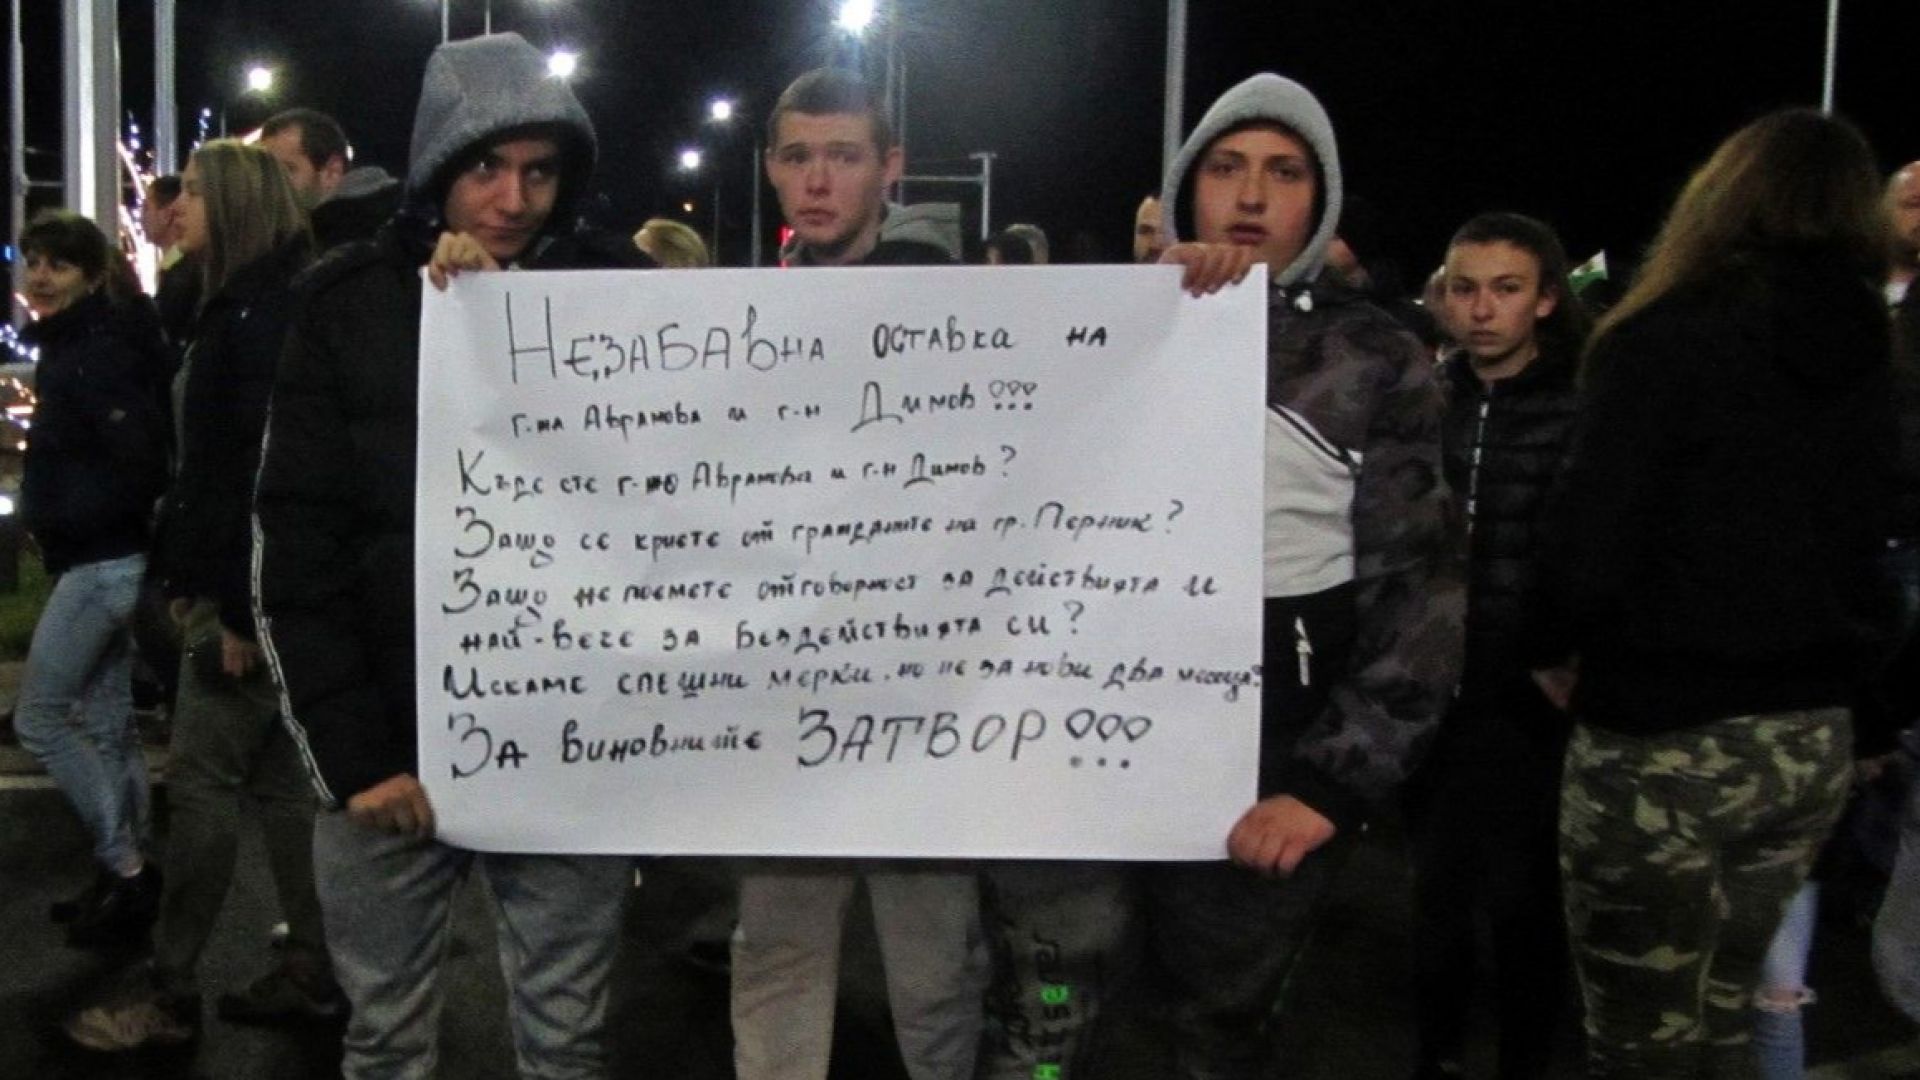 НЕЗАБАВНА ОСТАВКА НА
Г-ЖА АВРАМОВА И Г-Н ДИМОВ!!!
КЪДЕ СТЕ Г-ЖО АВРАМОВА И Г-Н ДИМОВ?
ЗАЩО СЕ КРИЕТЕ ОТ ГРАЖДАНИТЕ НА ГР. ПЕРНИК?
ЗАЩО НЕ ПОЕМЕТЕ ОТГОВОРНОСТ ЗА ДЕЙСТВИЯТА И
НАЙ-ВЕЧЕ ЗА БЕЗДЕЙСТВИЯТА СИ?
ИСКАМЕ СПЕШНИ МЕРКИ, НО НЕ ЗА НОВИ ДВА МЕСЕЦА!
ЗА ВИНОВНИТЕ ЗАТВОР!!!